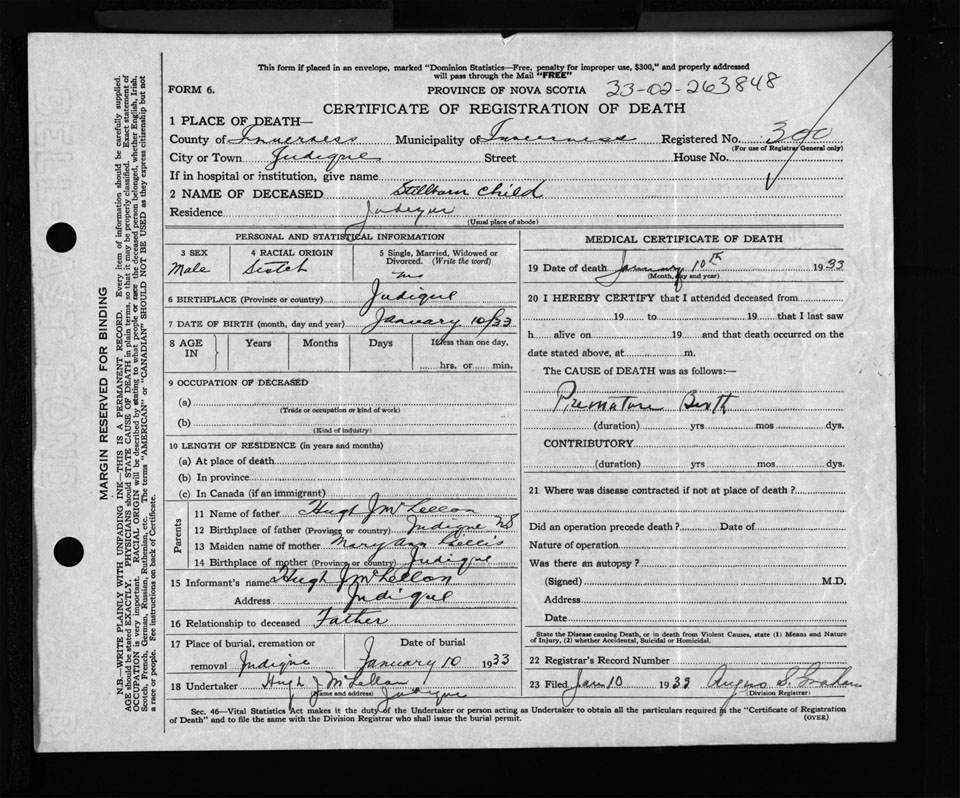 This form if placed in an envelope, marked "Dominion Statistics—Free, penalty for improper use, $300," and properly addressed
will pass through the Mail "FREE"
FORM 6.
PROVINCE OF NOVA SCOTIA 23-02-263848
CERTIFICATE OF REGISTRATION OF DEATH
1 PLACE OF DEATH—
County of Inverness Municipality of Inverness Registered No. 390
(For use of Registrar General only)
City or Town Judique Street House No.
If in hospital or institution, give name
2 NAME OF DECEASED Stillborn child
Residence Judique
(Usual place of abode)
PERSONAL AND STATISTICAL INFORMATION
3 SEX 4 RACIAL ORIGIN 5 Single, Married, Widowed or
Divorced. (Write the word)
Male Scotch
6 BIRTHPLACE (Province or country) Judique
7 DATE OF BIRTH (month, day and year) January 10/33
8 AGE IN Years Months Days If less than one day,
hrs. or min.
9 OCCUPATION OF DECEASED
(a)
(Trade or occupation or kind of work)
(b)
(Kind of industry)
10 LENGTH OF RESIDENCE (in years and months)
(a) At place of death
(b) In province
(c) In Canada (if an immigrant)
Parents
11 Name of father Hugh J McLellan
12 Birthplace of father (Province or country) Judique NS
13 Maiden name of mother Mary Ann Gillis
14 Birthplace of mother (Province or country) Judique
15 Informant's name Hugh J McLellan
Address Judique
16 Relationship to deceased Father
17 Place of burial, cremation or Date of burial
removal Judique January 10 1933
18 Undertaker Hugh J McLellan
(Name and address) Judique
MEDICAL CERTIFICATE OF DEATH
19 Date of death January 10th 1933
(Month, day and year)
20 I HEREBY CERTIFY that I attended deceased from
19 to 19 that I last saw
h alive on 19 and that death occurred on the
date stated above, at m.
The CAUSE of DEATH was as follows:—
Premature Birth
(duration) yrs mos dys.
CONTRIBUTORY
(duration) yrs mos dys.
21 Where was disease contracted if not at place of death?
Did an operation precede death? Date of
Nature of operation
Was there an autopsy?
(Signed) M.D.
Address
Date
State the Disease causing Death, or in death from Violent Causes, state (1) Means and Nature
of Injury, (2) whether Accidental, Suicidal or Homicidal.
22 Registrar's Record Number
23 Filed Jan 10 1933 Angus S. Graham
(Division Registrar)
Sec. 46—Vital Statistics Act makes it the duty of the Undertaker or person acting as Undertaker to obtain all the particulars required in the "Certificate of Registration
of Death" and to file the same with the Division Registrar who shall issue the burial permit. (OVER)
MARGIN RESERVED FOR BINDING
N.B.—WRITE PLAINLY WITH UNFADING INK—THIS IS A PERMANENT RECORD. Every item of information should be carefully supplied.
AGE should be stated EXACTLY. PHYSICIANS should STATE CAUSE OF DEATH in plain terms, so that it may be properly classified. Exact statement of
OCCUPATION is very important. RACIAL ORIGIN will be described by stating to what people or race the deceased person belonged, whether English, Irish,
Scotch, French, German, Russian, Ruthenian, etc. The terms "AMERICAN" or "CANADIAN" SHOULD NOT BE USED as they express citizenship but not
a race or people. See instructions on back of Certificate.